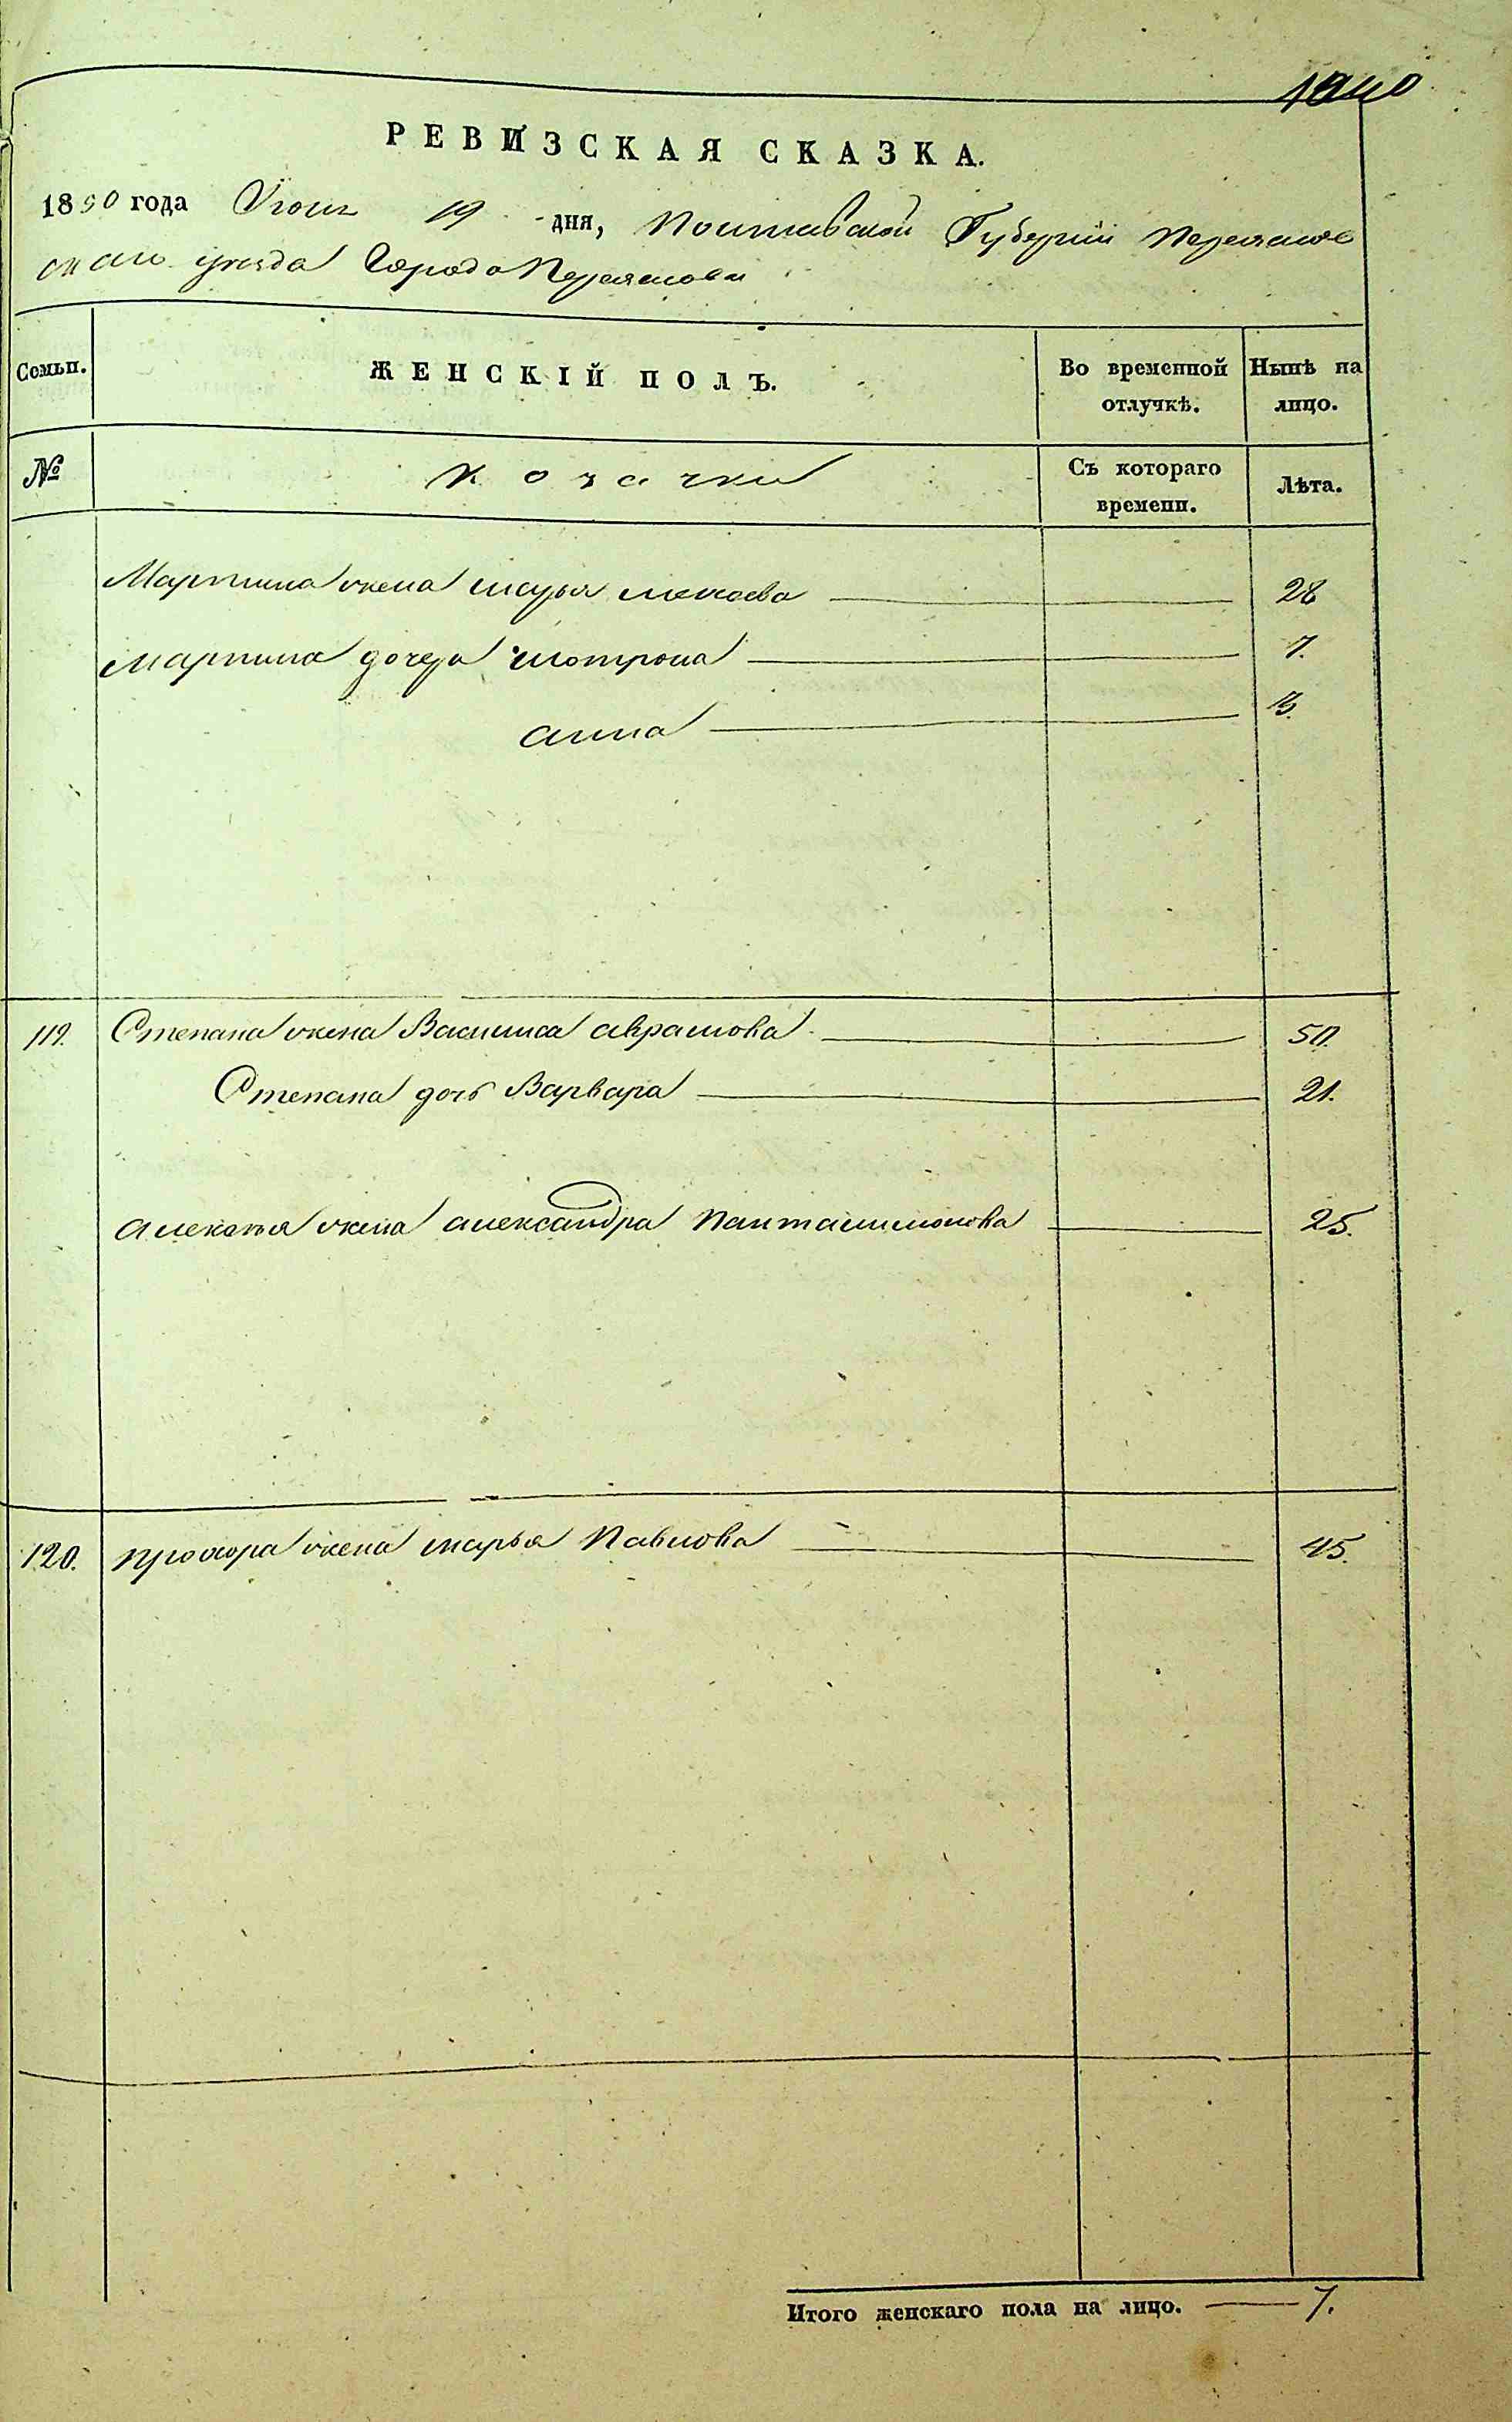 РЕВИЗСКАЯ СКАЗКА.
1850 года Июня 19 дня, Полтавской Губернiи Переяслов
скаго уезда Города Переяслова
Семьи. ЖЕНСКIЙ ПОЛЪ. Во временной отлучкѣ. Нынѣ на лицо.
№ козачки Съ котораго времени. Лѣта.
Мартина жена марья 28
мартина дочеря мотрона 7.
анна 3.
119. Степана жена Василиса аврамова 50.
Степана дочь Варвара 21.
алексея жена александра Панталимонова 25.
120. прохора жена марья Павлова 45.
Итого женскаго пола на лицо. 7.